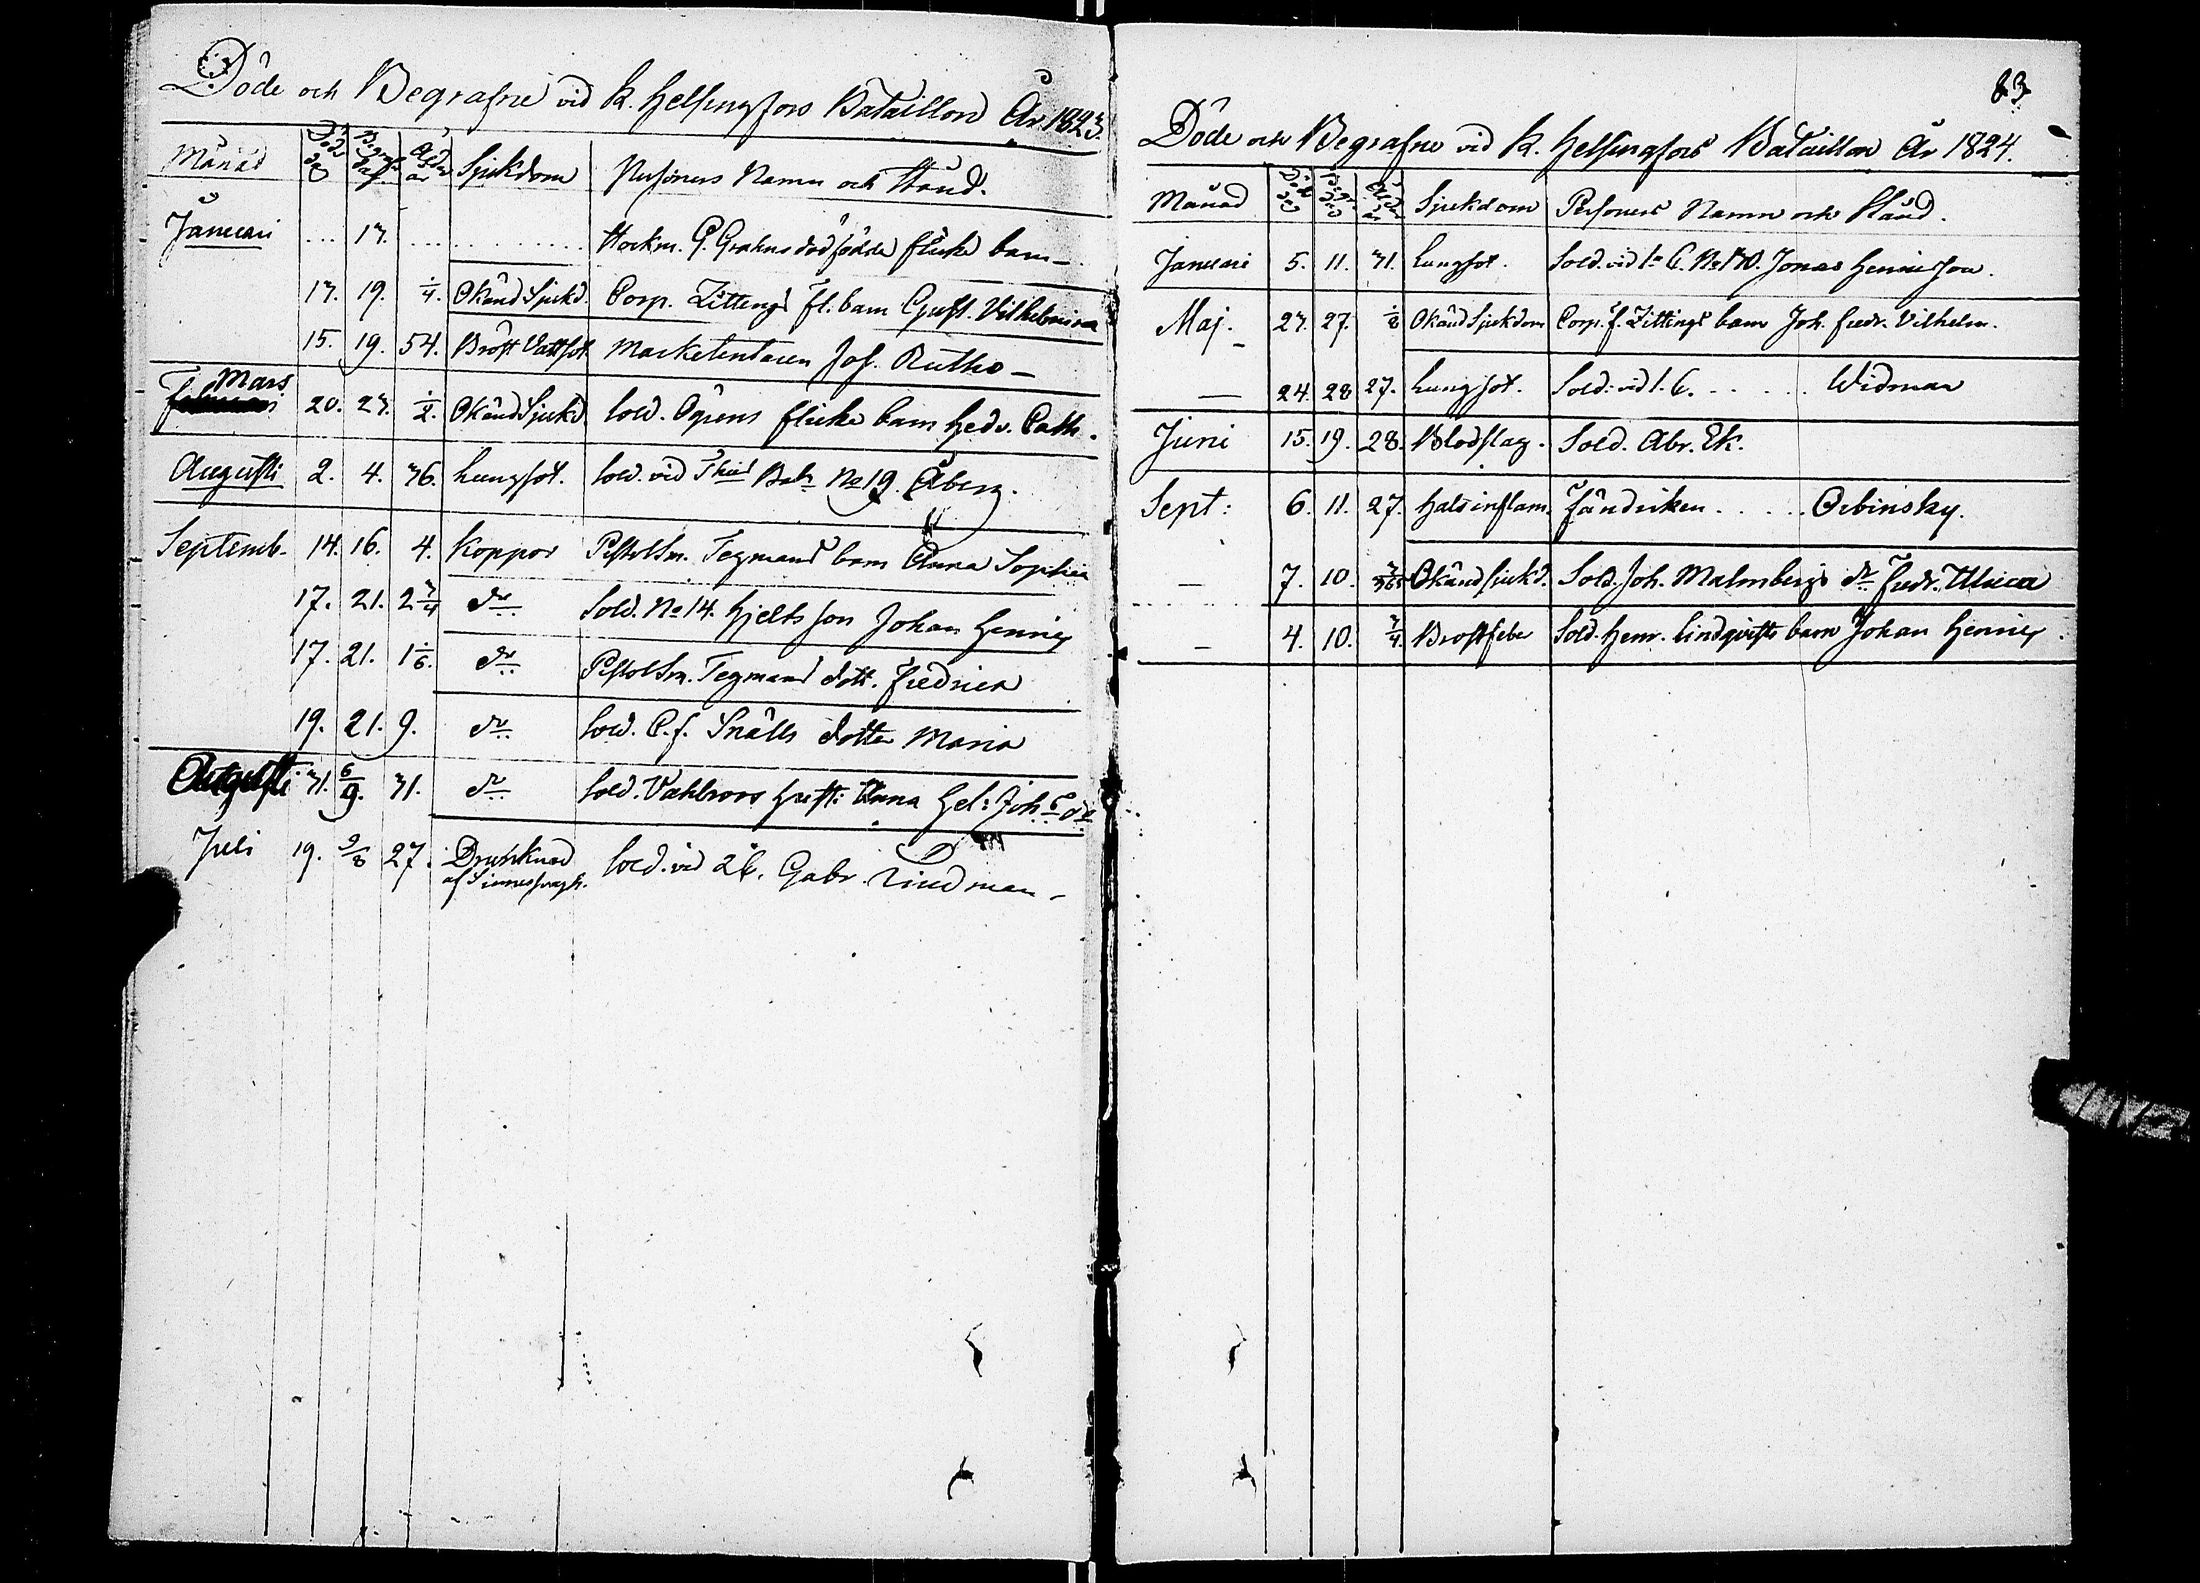 Döde och Begrafne vid K. Helsingfors Bataillon År 1823.
Månad Död dag Begr. dag Åld. år Sjukdom Personens Namn och Stånd.
Januari ... 13. ... .......... G. Grahns dödfödda flicke barn –
13. 19. 1/4. Okänd Sjukd. Corp. Zittings fl. barn Gust. Vilhelmina
15. 19. 54. Bröst Vattsot Marketentaren Jos. Rutho –
Mars 20. 23. 1/2. Okänd Sjukd. Sold. Ögrens flicke barn Hedv. Cath.
Augusti 2. 4. 36. Lungsot. Sold. vid No 19. Åberg.
Septemb. 14. 16. 4. Koppor Tegmans barn Anna Sophia
17. 21. 2 3/4 do Sold. No 14. Hjelts son Johan Henric
17. 21. 1 1/6. do Tegmans dott. Fredrica
19. 21. 9. do Sold. C. f. Snälls dotter Maria
Augusti 31. 6/9. 31. do Sold. Vahlroos hustr: Anna Hel: Joh:s dr
Juli 19. 9/8 27. Drunknad Sold. vid 2 C. Gabr. Lindman –
af Sinnessvagh.
83.
Döde och Begrafne vid K. Helsingfors Bataillon År 1824.
Månad Död dag Begr. dag Åld. år Sjukdom Personens Namn och Stånd.
Januari 5. 11. 31. Lungsot. Sold. vid 1a C. No 170. Jonas Henricsson.
Maj. 23. 27. 1/8 Okänd Sjukdom Corp. f. Zittings barn Joh. Fredr. Vilhelm.
– 24. 28 27. Lungsot. Sold. vid 1. C. ..... Widman
Juni 15. 19. 28. Blodslag. Sold. Abr. Ek.
Sept: 6. 11. 27. Halsinflam. Fändriken ..... Orbinsky.
– 7. 10. 3/365 Okänd sjukd. Sold. Joh. Malmbergs dr Fredr. Ulrica
– 4. 10. 3/4. Bröstfeber Sold. Henr. Lindqvists barn Johan Henric.